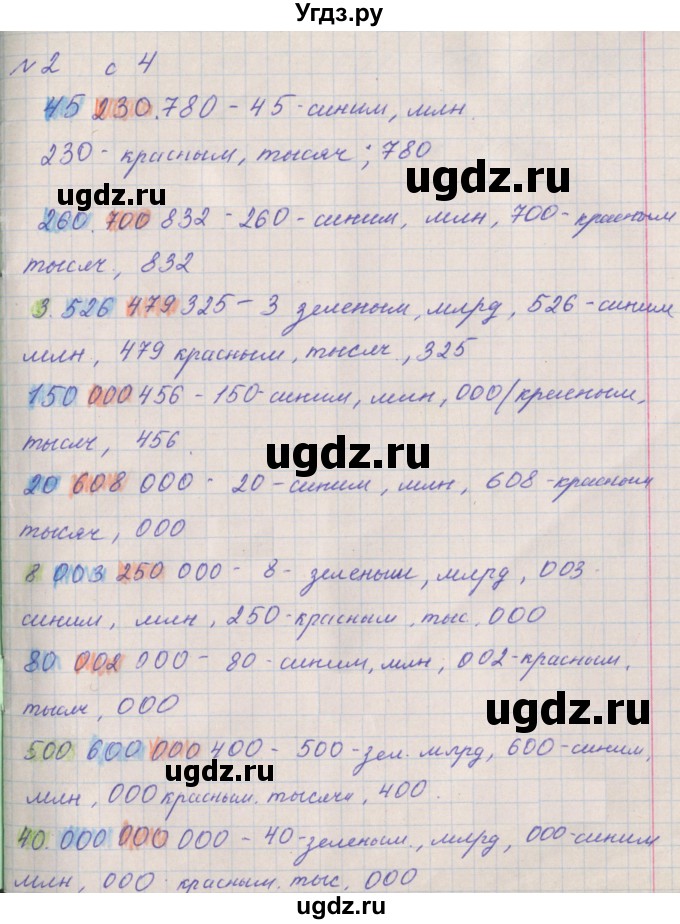 Угдз.ру
№2 с 4
45 230.780 - 45 - синим, млн
230 - красным, тысяч; 780
ugdz.ru
ugdz.ru
260. 700 832 - 260 - синим, млн, 700 - красным
тысяч, 832
3. 526 479 325 - 3 зеленым, млрд, 526 - синим
млн, 479 красным, тысяч, 325
150 000 456 - 150 - синим, млн, 000/красным,
тысяч, 456
ugdz.ru
20 608 000 - 20 - синим, млн, 608 - красным
тысяч, 000
8 003 250 000 - 8 - зеленым, млрд, 003 -
синим, млн, 250 - красным, тыс, 000
80 002 000 - 80 - синим, млн, 002 - красным,
тысяч, 000
ugdz.ru
500 600 000 400 - 500 - зел. млрд, 600 - синим,
ugdz.ru
млн, 000 красным. тысячи, 400.
40. 000 000 000 - 40 - зеленым., млрд, 000 - синим
млн, 000 - красным. тыс, 000
ugdz.ru